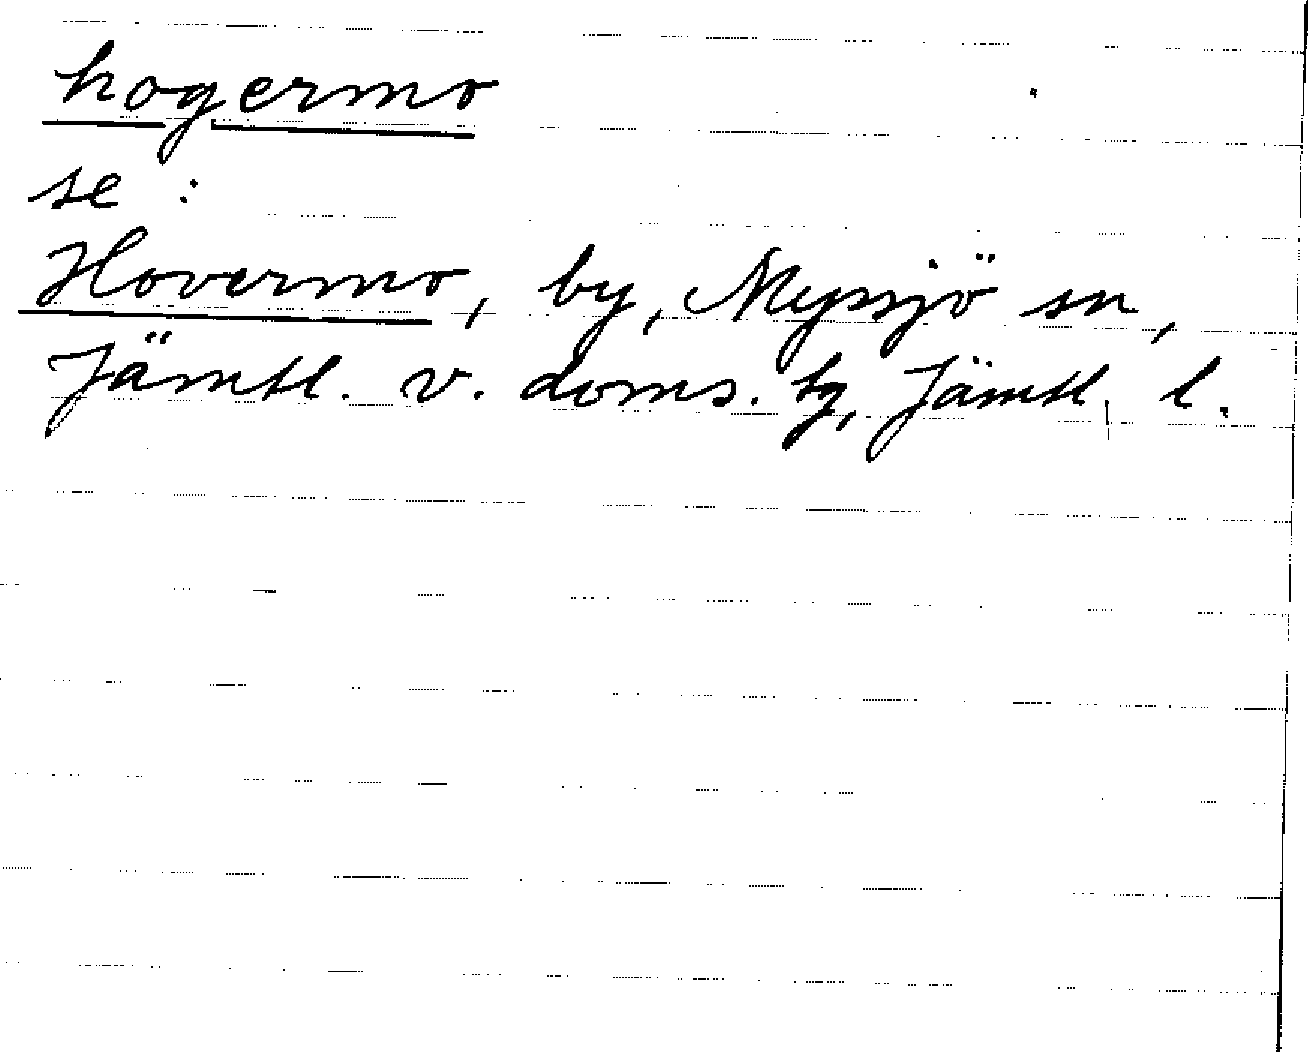 hogermo
se :
Hovermo, by, Myssjö sn,
Jämtl. v. doms. tg, Jämtl. l.